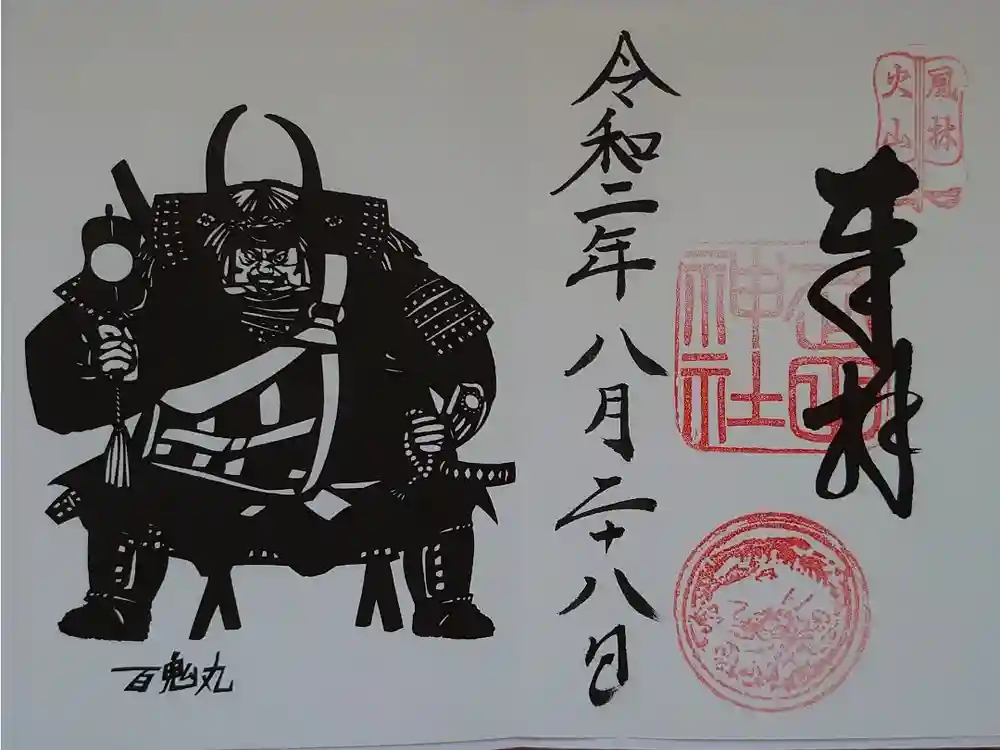 風林
火山
奉拝
信玄
神社
令和二年八月二十八日
百鬼丸